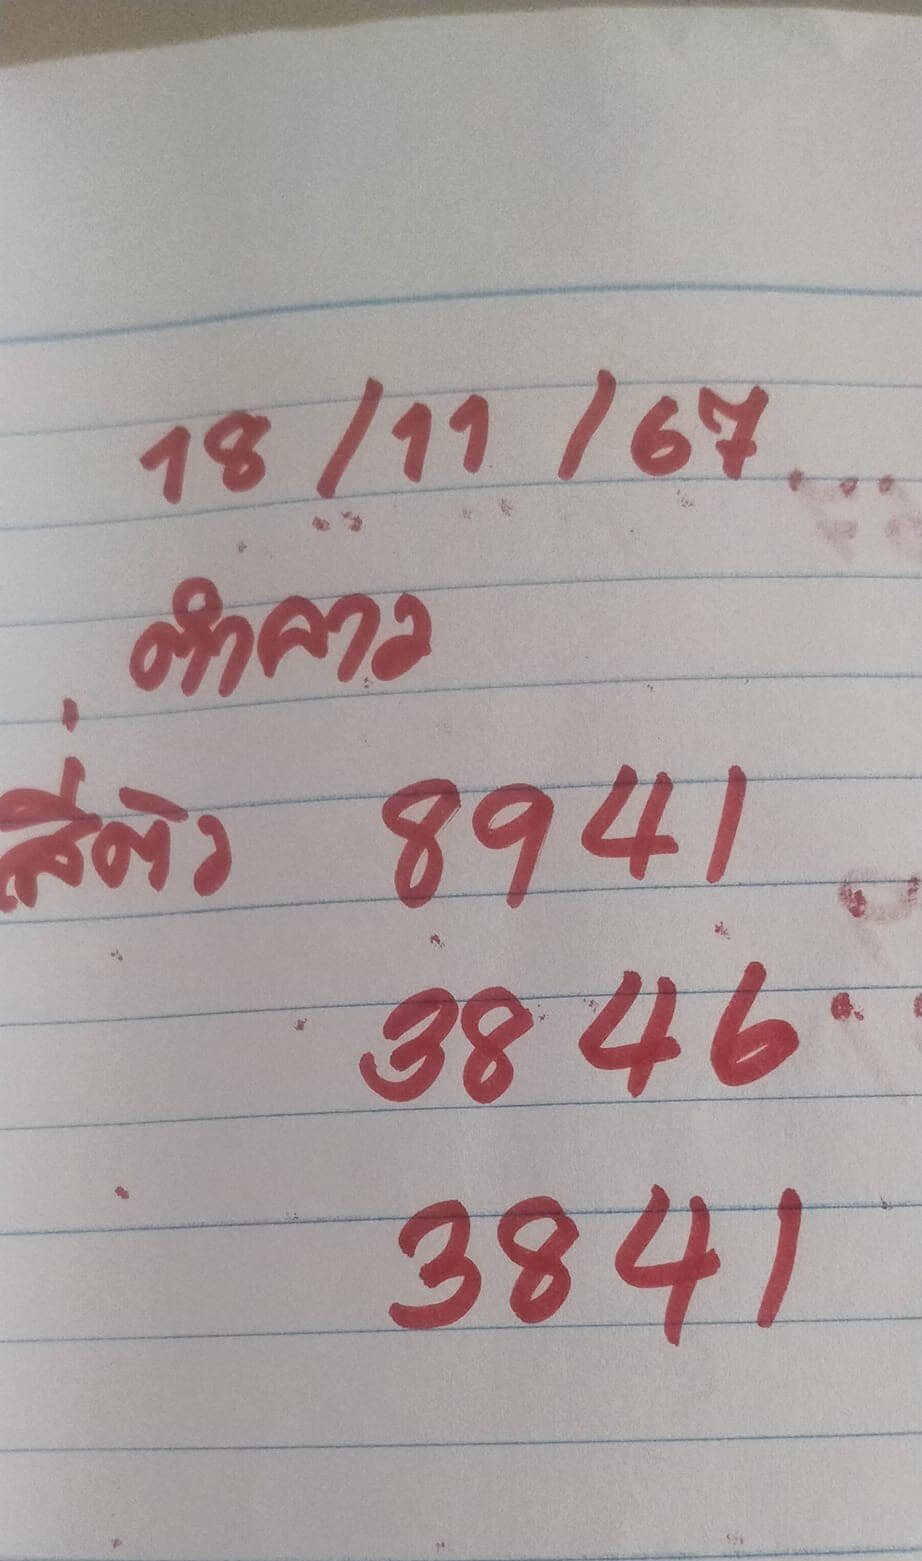 18/11/67...
คำลาว
สี่ตัว 8941
3846
3841